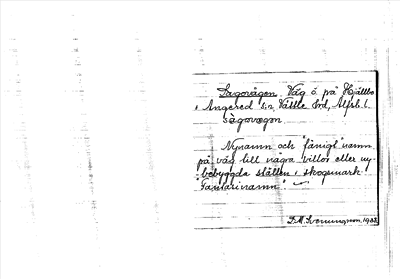 Sagovägen Väg ö. på Hjällbo
i Angered sn, Vättle hd, Älfsb. l.
sàgovægen
Nynamn och "fånigt" namn
på väg till några villor eller ny-
bebyggda ställen i skogsmark.
"Fantasinamn".
D.A. Svenungsson. 1933